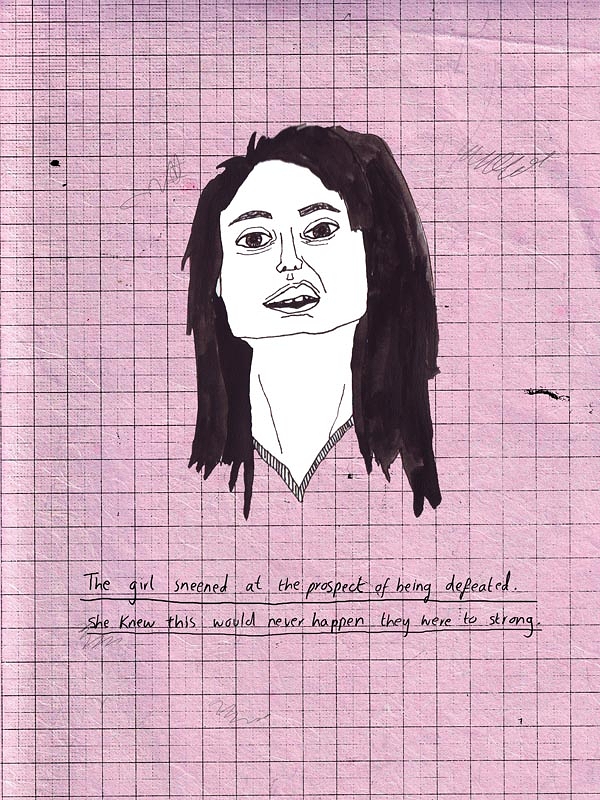 The girl sneened at the prospect of being defeated.
She knew this would never happen they were to strong.